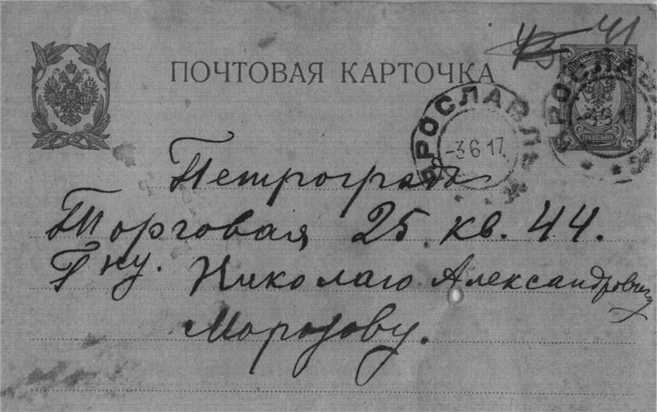 41
ПОЧТОВАЯ КАРТОЧКА
ЯРОСЛАВЛЬ
-3 6 17
ЯРОСЛАВ
-3.6.1
Петроградъ
Торговая 25. кв. 44.
Гну. Николаю Александровичу
Морозову.